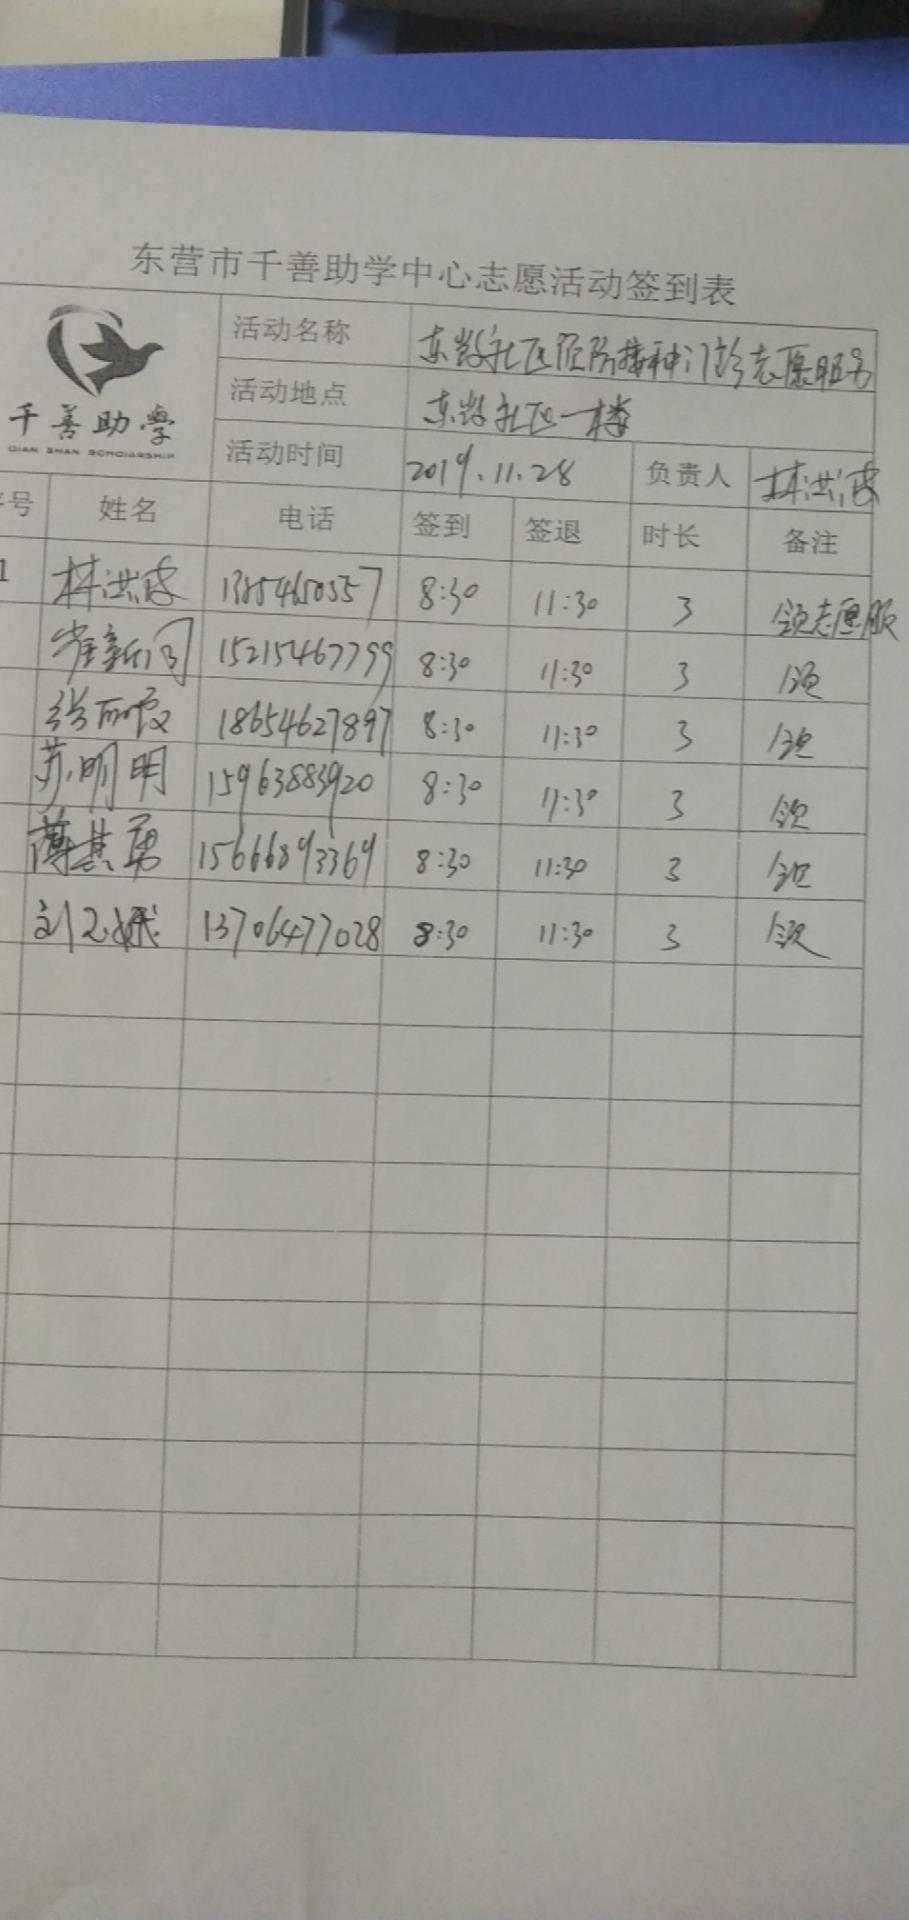 东营市千善助学中心志愿活动签到表
千善助學
QIAN SHAN SCHOLARSHIP
活动名称 社区预防接种门诊志愿服务
活动地点 社区一楼
活动时间 2019.11.28 负责人 林洪波
号 姓名 电话 签到 签退 时长 备注
1 林洪波 13854650357 8:30 11:30 3 领志愿服
崔新同 15215467799 8:30 11:30 3 领
张丽霞 18654627897 8:30 11:30 3 领
苏明明 15963883920 8:30 11:30 3 领
薄其勇 15666893369 8:30 11:30 3 领
刘 13706477028 8:30 11:30 3 领